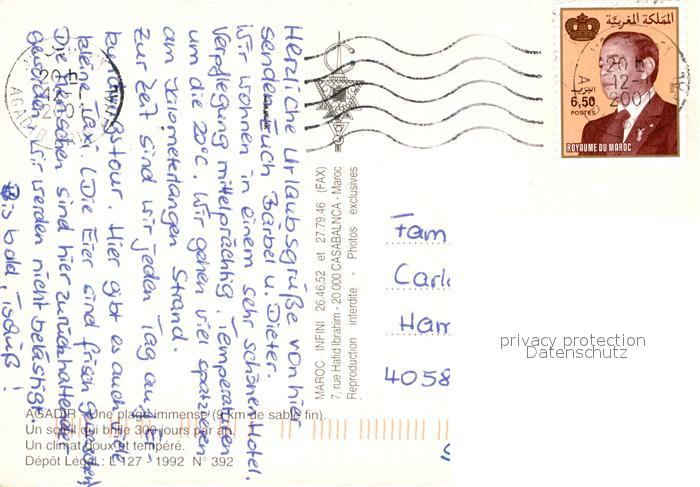 Herzliche Urlaubsgrüße von hier
senden Euch Bärbel u. Dieter.
Wir wohnen in einem sehr schönen Hotel.
Verpflegung mittelprächtig. Temperaturen
um die 20°C. Wir gehen viel spazieren
am kilometerlangen Strand.
Zur Zeit sind wir jeden Tag auf Er-
kundungstour. Hier gibt es auch viele
kleine Taxi. (Die Eier sind frisch
Die Menschen sind hier zurückhaltender
geworden. Wir werden nicht belästigt.
Bis bald, Tschüß!
AGADIR - Une plage immense (9 km de sable fin).
Un soleil qui brille 300 jours par an.
Un climat doux et tempéré.
Dépôt Légal : L 127 - 1992 N° 392
MAROC INFINI 26.46.52 et 27.79.46 (FAX)
7, rue Hafid Ibrahim - 20 000 CASABALNCA - Maroc
Reproduction interdite - Photos exclusives
AGADIR
20 h
12
2001
المملكة المغربية
البريد
6,50
POSTES
ROYAUME DU MAROC
20 h
12
2001
Fam
Carl
Ham
4058
privacy protection
Datenschutz